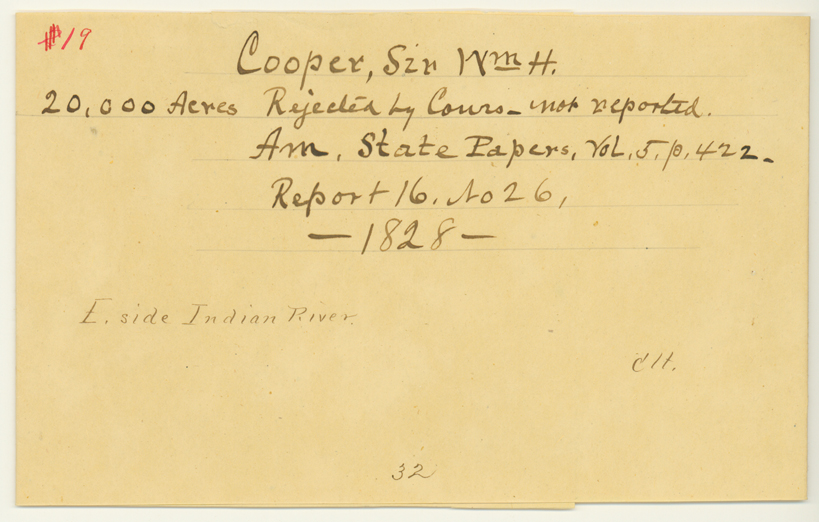 #19
Cooper, Sir Wm H.
20,000 Acres Rejected by Cours_ not reported.
Am. State Papers, Vol. 5. p. 422_
Report 16. No 26,
— 1828 —
E. side Indian River.
32